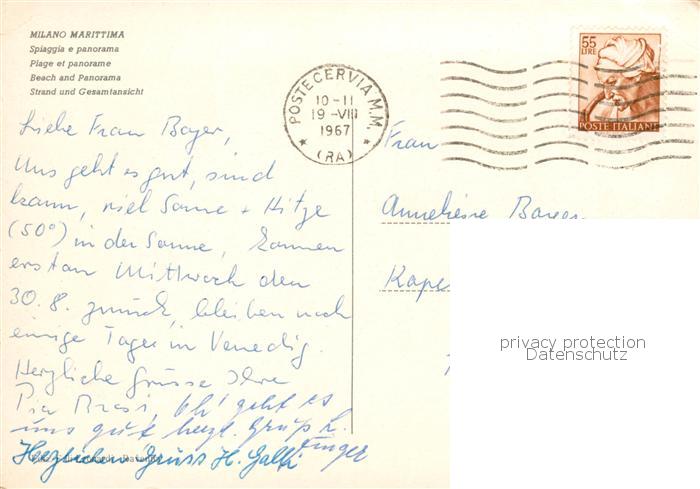 MILANO MARITTIMA
Spiaggia e panorama
Plage et panorame
Beach and Panorama
Strand und Gesamtansicht
POSTE CERVIA M.M.
10-11
19-VIII
1967
(RA)
55
LIRE
POSTE ITALIANE
Liebe Frau Bayer,
Uns geht es gut, sind
braun, viel Sonne + Hitze
(50°) in der Sonne, kommen
erst am Mittwoch den
30.8. zurück, bleiben noch
einige Tage in Venedig.
Herzliche Grüsse Ihre
Pia geht es
uns gut herzl.
Herzlichen Gruss H.
Frau
Anneliese Bayer
Kape
privacy protection
Datenschutz